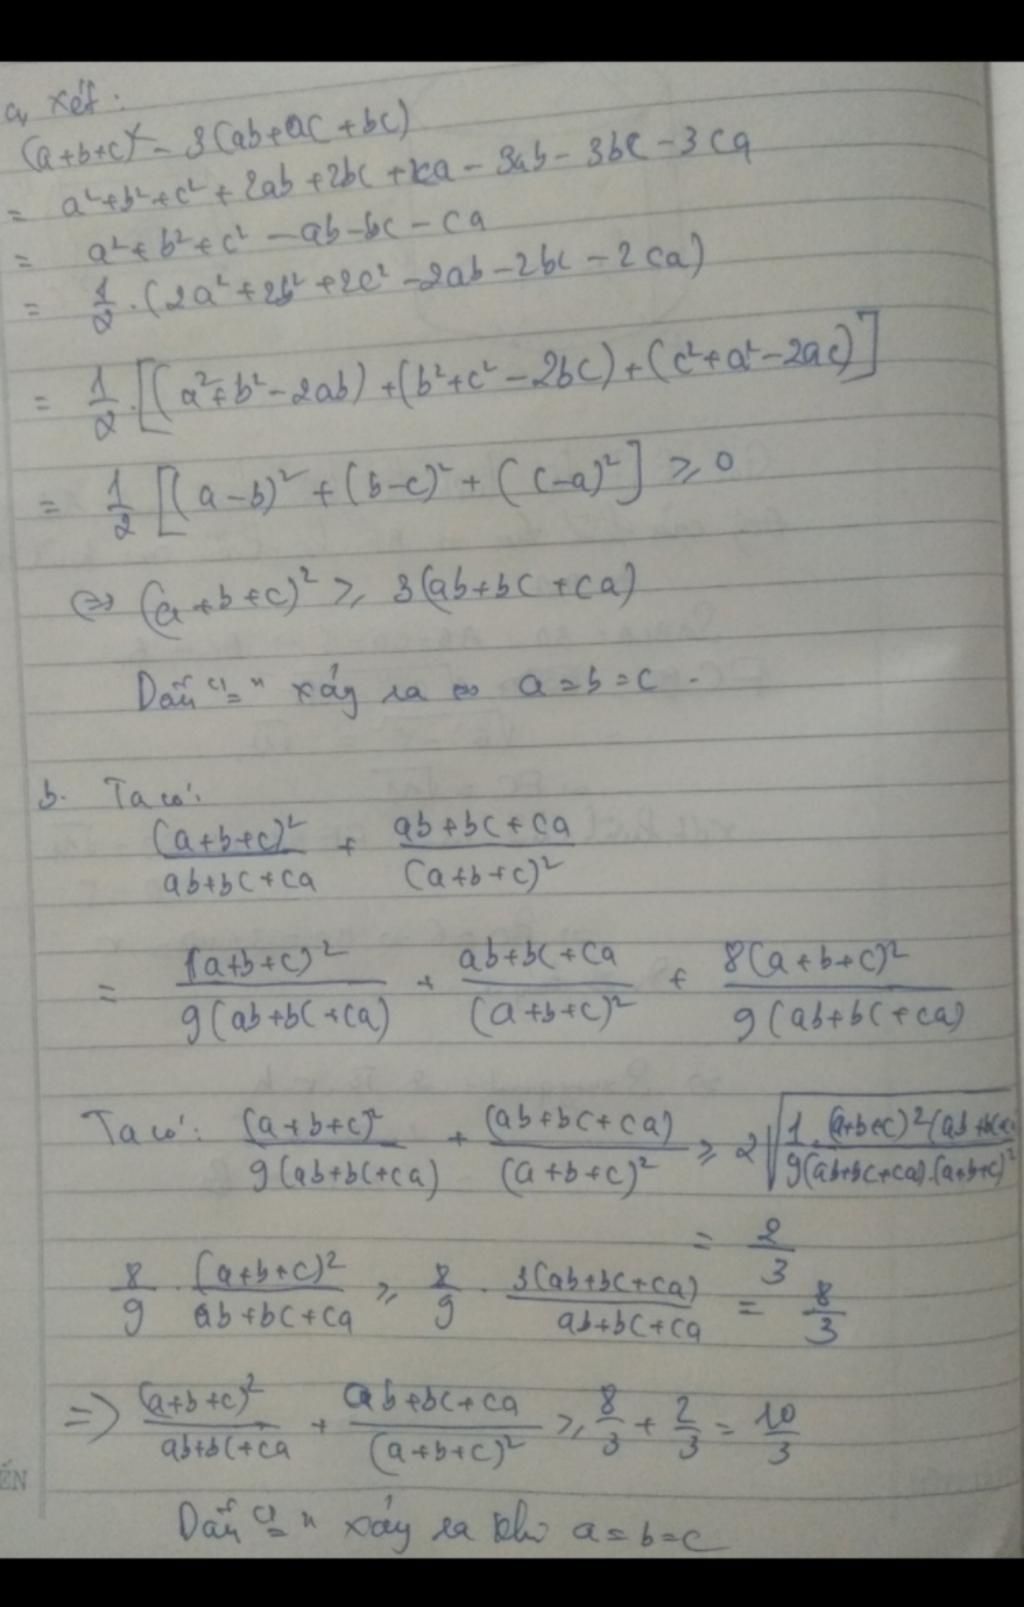 a, Xét:
(a+b+c)² - 3(ab+ac+bc)
= a²+b²+c²+2ab+2bc+2ca-3ab-3bc-3ca
= a²+b²+c²-ab-bc-ca
= 1/2 . (2a²+2b²+2c²-2ab-2bc-2ca)
= 1/2 . [(a²+b²-2ab)+(b²+c²-2bc)+(c²+a²-2ac)]
= 1/2 [(a-b)²+(b-c)²+(c-a)²] ≥ 0
⇔ (a+b+c)² ≥ 3(ab+bc+ca)
Dấu "=" xảy ra ⇔ a=b=c.
b. Ta có:
(a+b+c)²/(ab+bc+ca) + (ab+bc+ca)/(a+b+c)²
= 1(a+b+c)²/9(ab+bc+ca) + (ab+bc+ca)/(a+b+c)² + 8(a+b+c)²/9(ab+bc+ca)
Ta có: (a+b+c)²/9(ab+bc+ca) + (ab+bc+ca)/(a+b+c)² ≥ 2√(1.(a+b+c)²(ab+bc+c/9(ab+bc+ca).(a+b+c)²)
= 2/3
8/9 . (a+b+c)²/(ab+bc+ca) ≥ 8/9 . 3(ab+bc+ca)/(ab+bc+ca) = 8/3
=> (a+b+c)²/(ab+bc+ca) + (ab+bc+ca)/(a+b+c)² ≥ 8/3 + 2/3 = 10/3
ẾN
Dấu "=" xảy ra khi a=b=c